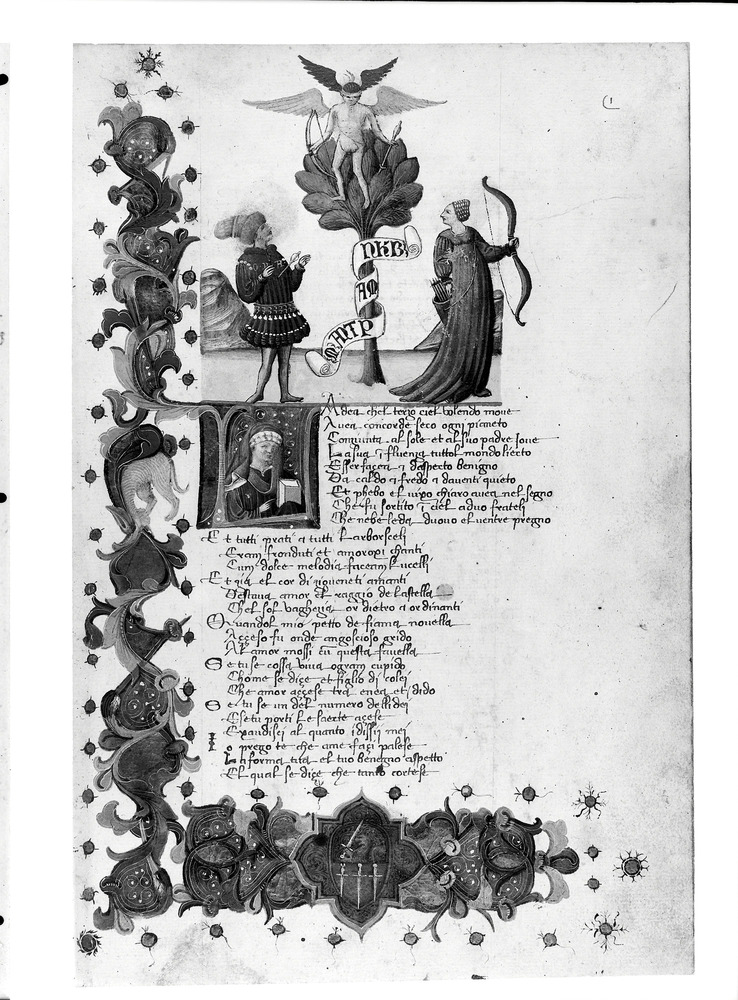 1
NKB
AM
MTP
L
A dea chel terzo ciel volendo move
Avea concorde seco ogni pianeto
Congiunta al sole et al suo padre Jove
La sua ifluenza tuttol mondo lieto
Esser facea et daspecto benigno
Da caldo a fredo a daventi quieto
Et phebo el viso chiaro avea nel segno
Che fu sortito i ciel a duo frateli
Che nebe leda duovo el ventre pregno
Et tutti prati a tutti Larborscelj
Eram fronduti et amoroxi chanti
Cum dolce melodia faceam Lucelli
Et gia el cor di gioveneti amanti
Destava amor el raggio de lastella
Chel sol vagheggia or dietro a or dinanti
Quandol mio petto de fiama novella
Acceso fu onde angoscioso grido
Al amor mossi cu questa favella
Se tu se cossa viva ogram cupido
Chome se dice et figlio di colei
Che amor accese tra enea et dido
Se tu se un del numero delli dei
E se tu porti le saette acese
Exaudisci al quanto i dissii mei
Io prego te che ame faci palese
La forma tua el tuo benegno aspetto
El qual se dice che tanto cortese